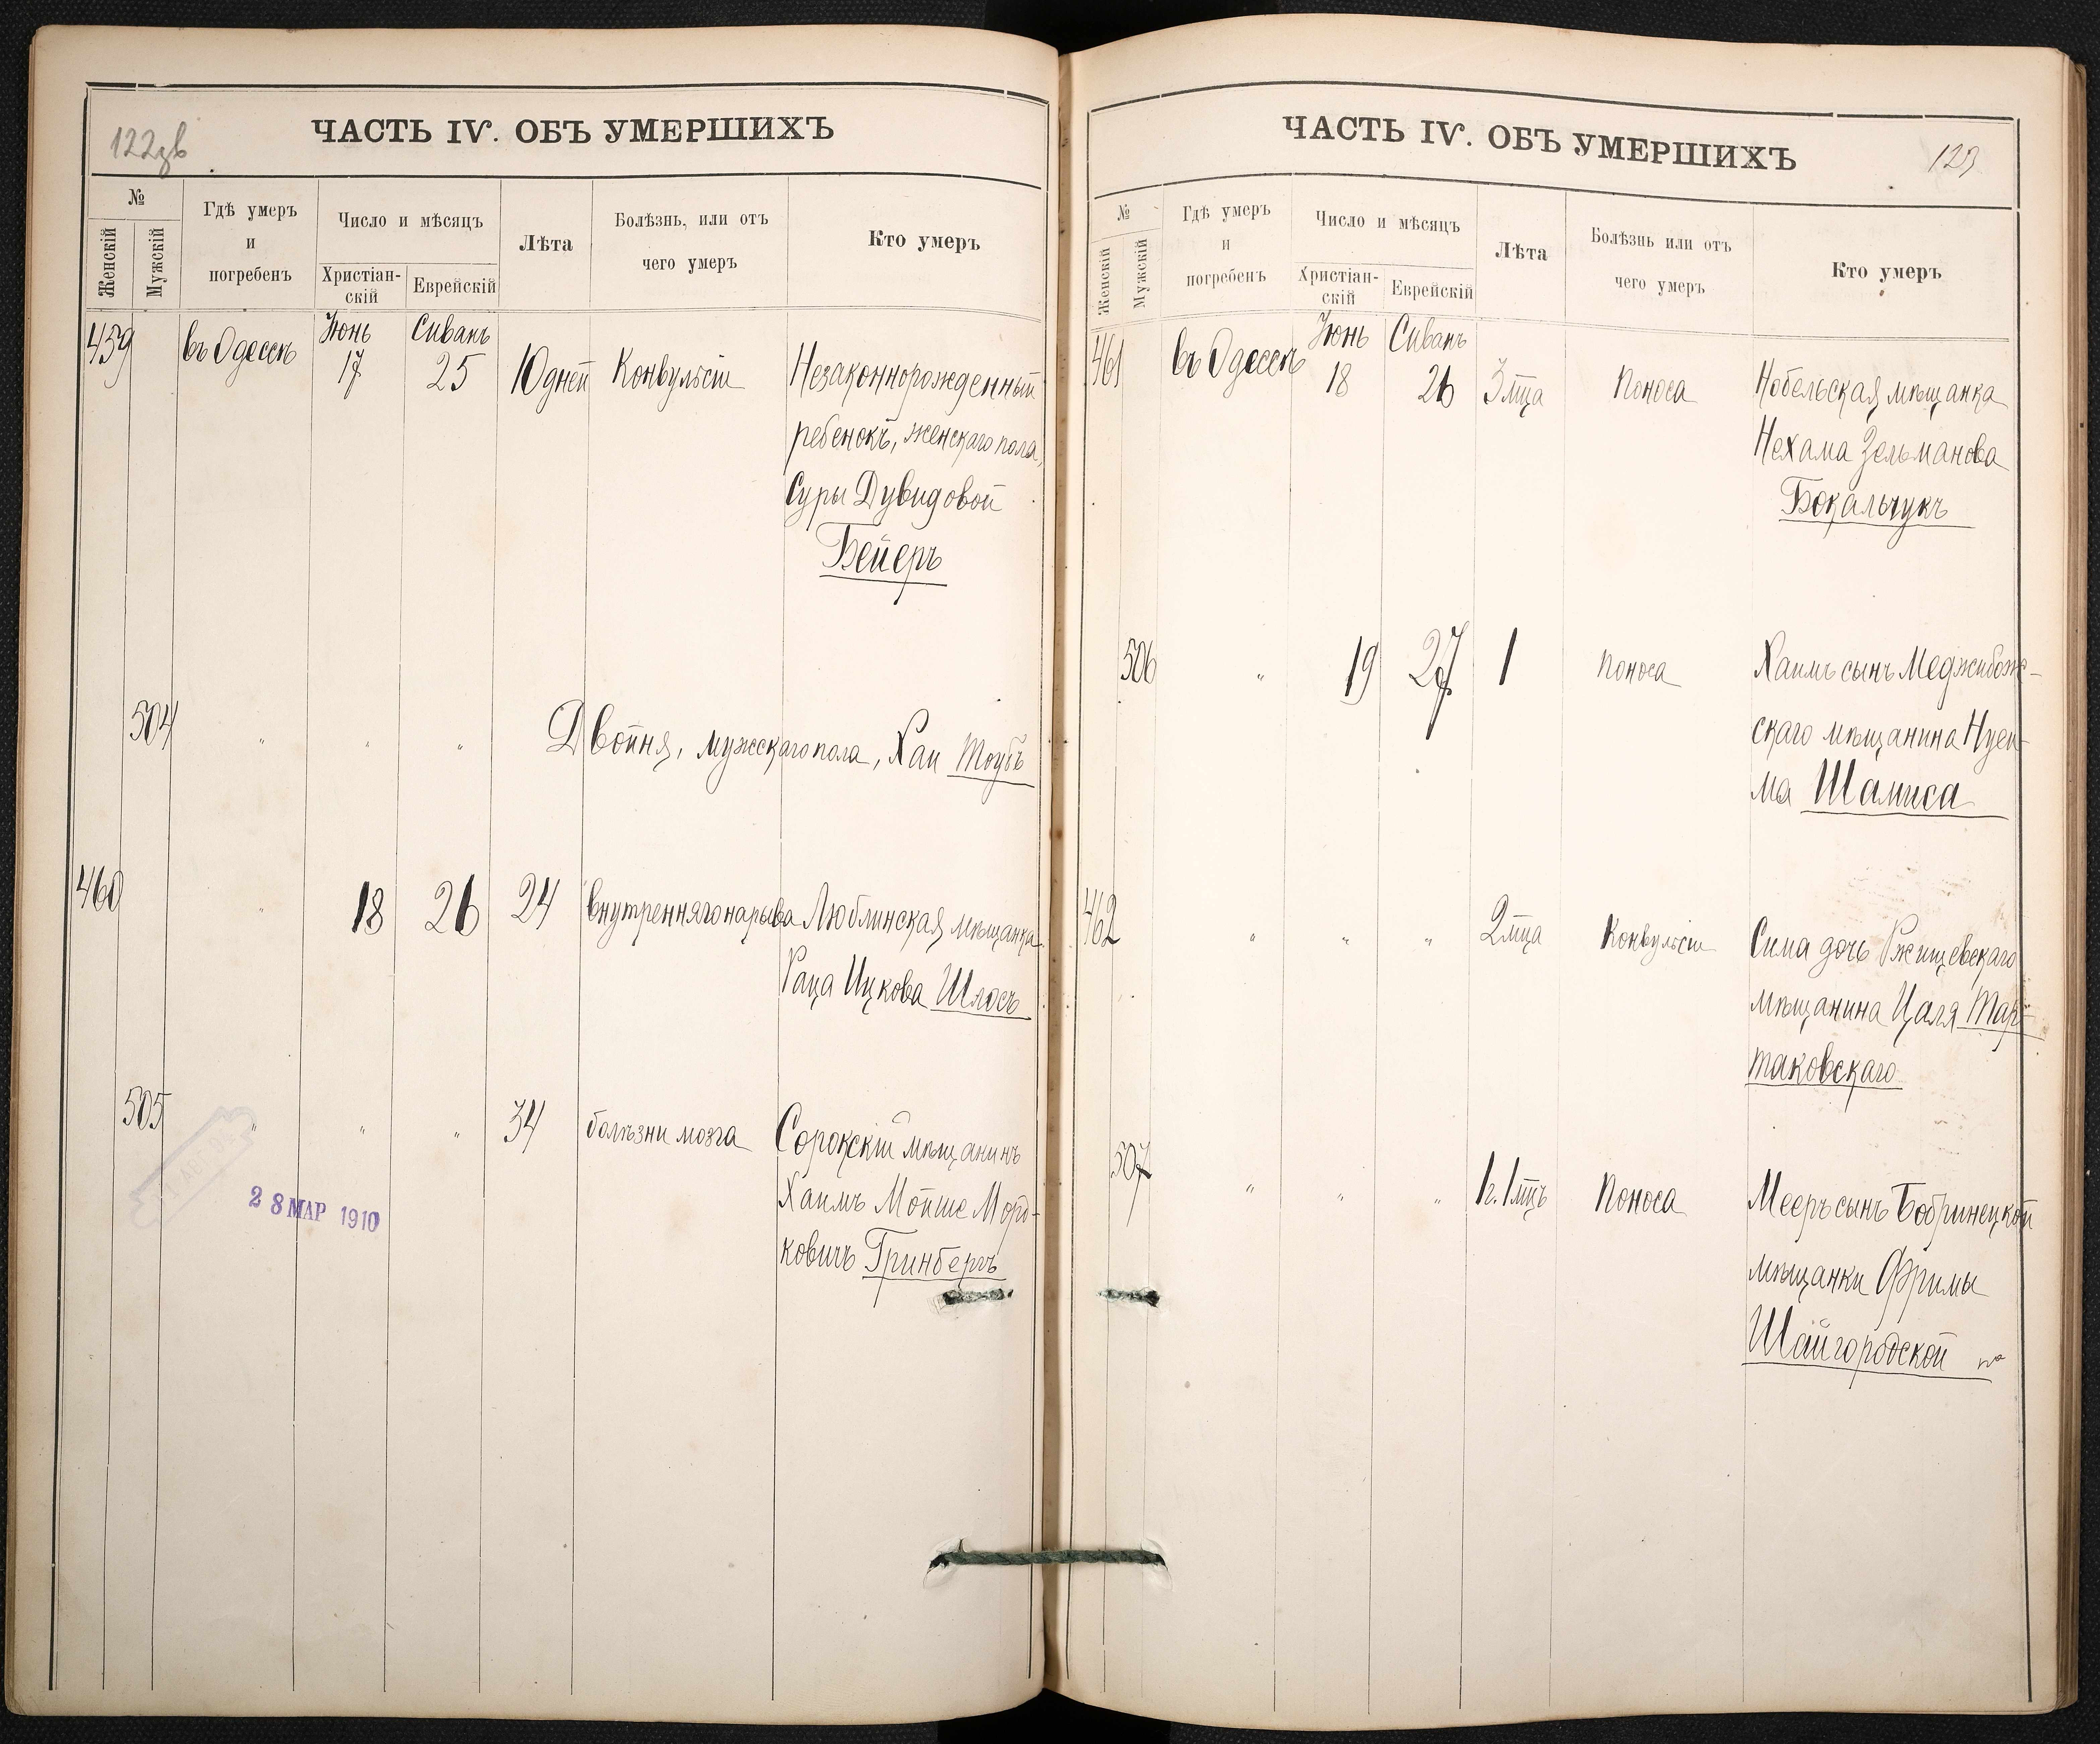 122зв
ЧАСТЬ IV. ОБЪ УМЕРШИХЪ
№
Женскій
Мужскій
Гдѣ умеръ
и
погребенъ
Число и мѣсяцъ
Христіан-
скій
Еврейскій
Лѣта
Болѣзнь, или отъ
чего умеръ
Кто умеръ
Іюнь Сиванъ
459 въ Одессѣ 17 25 10 дней Конвульсіи Незаконнорожденный
ребенокъ, женскаго пола,
Суры Дувидовой
Бейеръ
504 " " " Двойня, мужскаго пола, Хаи Тоубъ
460 " 18 26 24 внутренняго нарыва Люблинская мѣщанка
Раца Ицкова Шлосъ
505 " " " 34 болѣзни мозга Сорокскій мѣщанинъ
Хаимъ Мойше Морд-
ковичъ Гринбергъ
28 МАР 1910
ЧАСТЬ IV. ОБЪ УМЕРШИХЪ
123
№
Женскій
Мужскій
Гдѣ умеръ
и
погребенъ
Число и мѣсяцъ
Христіан-
скій
Еврейскій
Лѣта
Болѣзнь или отъ
чего умеръ
Кто умеръ
Іюнь Сиванъ
461 въ Одессѣ 18 26 3 мца Поноса Нобельская мѣщанка
Нехама Зельманова
Бокальчукъ
506 " 19 27 1 Поноса Хаимъ сынъ Меджибож-
скаго мѣщанина Нуси-
ма Шамиса
462 " " " 2 мца Конвульсіи Сима дочь Ржищевскаго
мѣщанина Цаля Тар-
таковскаго
507 " " " 1 г. 1 мцъ Поноса Мееръ сынъ Бобринецкой
мѣщанки Фримы
Шайгородской